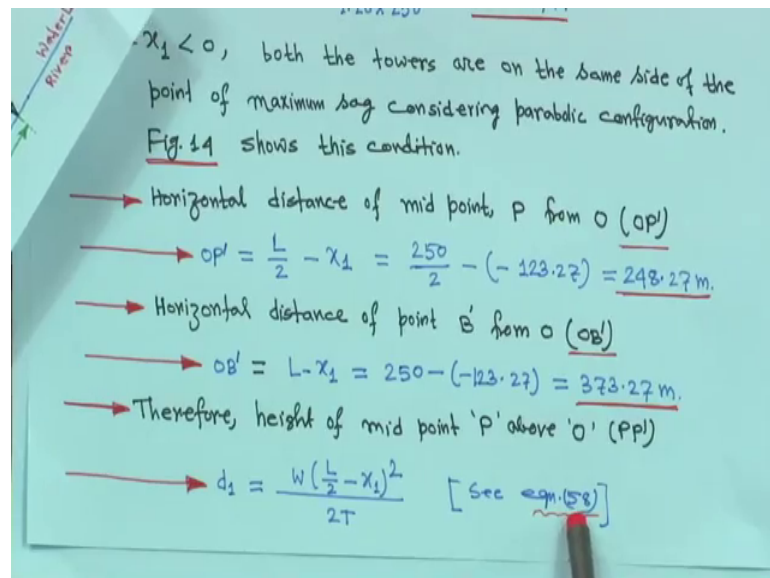 Water L
River
x₁ < 0, both the towers are on the same side of the
point of maximum sag considering parabolic configuration.
Fig. 14 shows this condition.
Horizontal distance of mid point, P from O (OP')
OP' = L/2 - x₁ = 250/2 - (-123.27) = 248.27 m.
Horizontal distance of point B' from O (OB')
OB' = L-x₁ = 250-(-123.27) = 373.27 m.
Therefore, height of mid point 'P' above 'O' (PP')
d₁ = W(L/2 - x₁)² / 2T [See eqn.(58)]